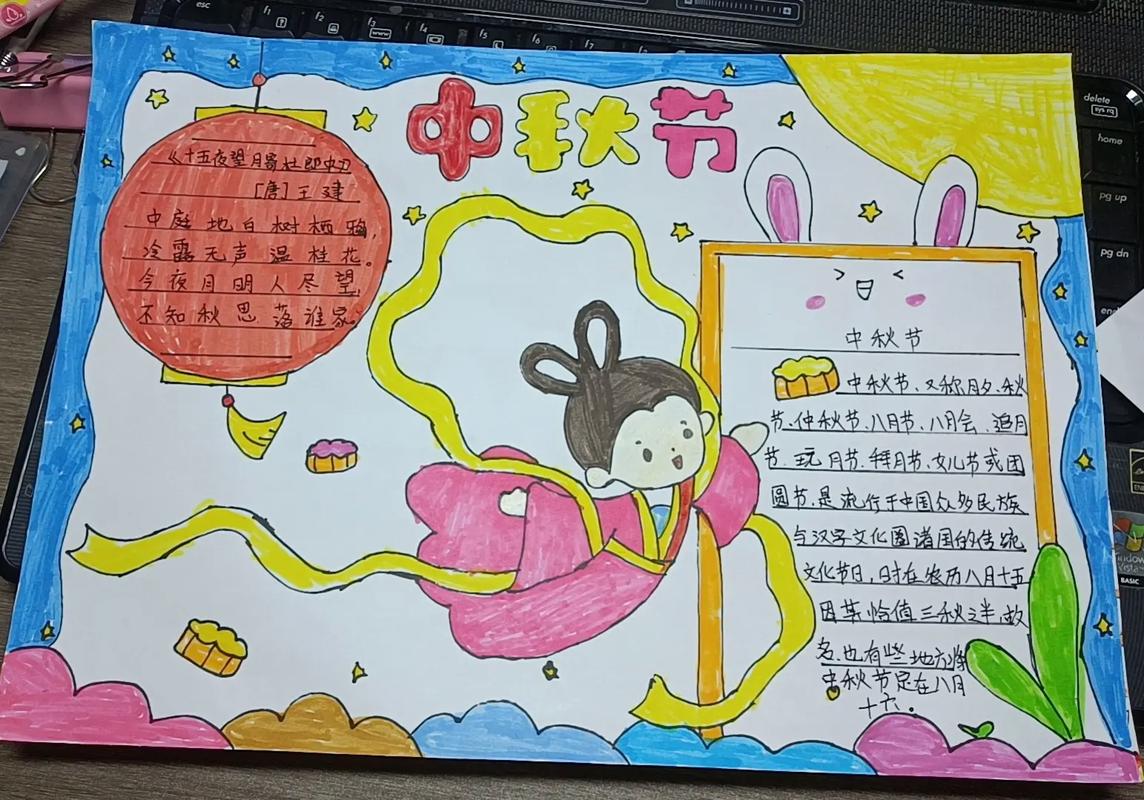 中秋节
《十五夜望月寄杜郎中》
[唐]王建
中庭地白树栖鸦,
冷露无声温桂花。
今夜月明人尽望
不知秋思落谁家。
中秋节
中秋节、又称月夕、秋
节、仲秋节、八月节、八月会、追月
节、玩月节、拜月节、女儿节或团
圆节、是流行于中国众多民族
与汉字文化圈诸国的传统
文化节日,时在农历八月十五
因其恰值三秋之半,故
名,也有些地方将
中秋节定在八月
十六。
esc
f1
f2
f3
f4
f5
f6
f7
delete
sys rq
home
pg up
pg dn
Windows
Vista
BASIC